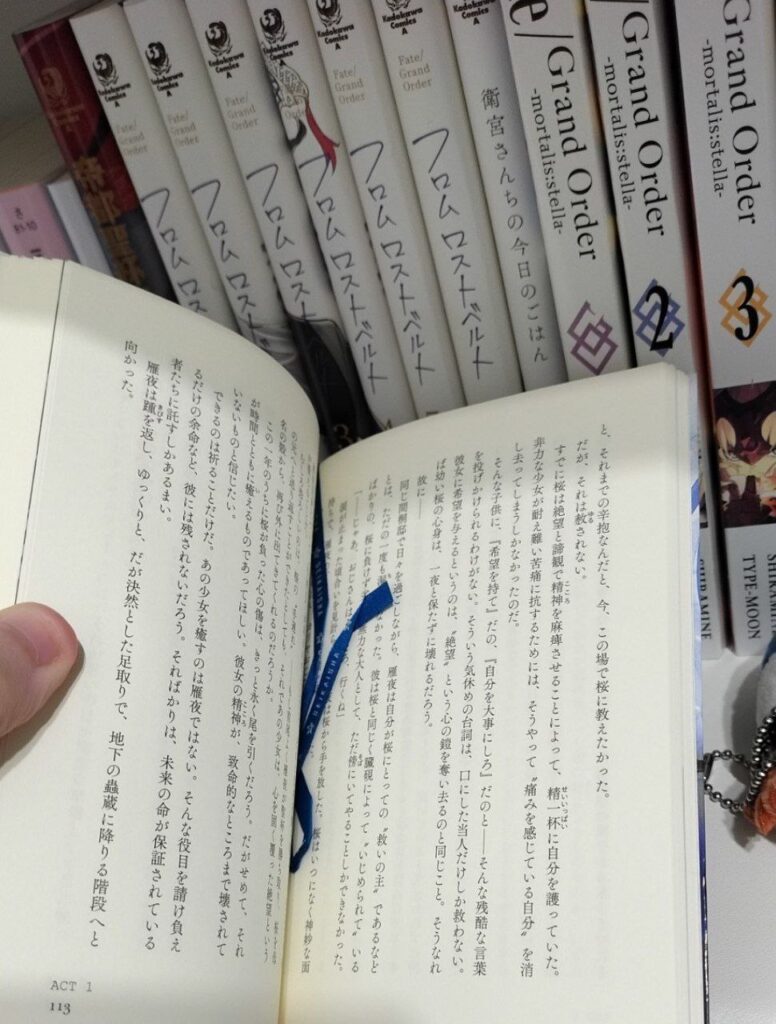 Kadokawa Comics A
Kadokawa Comics A
Kadokawa Comics A
Kadokawa Comics A
Kadokawa Comics A
Kadokawa Comics A
Fate/Grand Order
Fate/Grand Order
Fate/Grand Order
Fate/Grand Order
Fate/Grand Order
フロム ロスト
フロム ロストベ
フロム ロストベルト
フロム ロストベルト
フロム ロストベルト
フロム ロストベルト
3
衛宮さんちの今日のごはん
Grand Order
-mortalis:stella-
Grand Order
-mortalis:stella-
2
Grand Order
-mortalis:stella-
3
SHIRAMINE
SHIRAMINE
TYPE-MOON
と、それまでの辛抱なんだと、今、この場で桜に教えたかった。
だが、それは赦されない。
すでに桜は絶望と諦観で精神を麻痺させることによって、精一杯に自分を護っていた。
非力な少女が耐え難い苦痛に抗するためには、そうやって〝痛みを感じている自分〟を消
し去ってしまうしかなかったのだ。
そんな子供に、『希望を持て』だの、『自分を大事にしろ』だのと――そんな残酷な言葉
を投げかけられるわけがない。そういう気休めの台詞は、口にした当人だけしか救わない。
彼女に希望を与えるというのは、〝絶望〟という心の鎧を奪い去るのと同じこと。そうなれ
ば幼い桜の心身は、一夜と保たずに壊れるだろう。
故に――
同じ間桐邸で日々を過ごしながら、雁夜は自分が桜にとっての〝救いの主〟であるなど
とは、ただの一度も
なかった。彼は桜と同じく臓硯によって〝いじめられて〟いる
ばかりの、桜に負けず
力な大人として、ただ傍にいてやることしかできなかった。
「――じゃあ、おじさんは
、行くね」
話が止まった頃合いを見計
は桜から手を放した。桜はいつになく神妙な面
この一年のうちに桜が負った心の傷は、きっと永く尾を引くだろう。だがせめて、それ
が時間とともに癒えるものであってほしい。彼女の精神が、致命的なところまで壊されて
いないものと信じたい。
できるのは祈ることだけだ。あの少女を癒すのは雁夜ではない。そんな役目を請け負え
るだけの余命など、彼には残されないだろう。そればかりは、未来の命が保証されている
者たちに託すしかあるまい。
雁夜は踵を返し、ゆっくりと、だが決然とした足取りで、地下の蟲蔵に降りる階段へと
向かった。
ACT 1
113